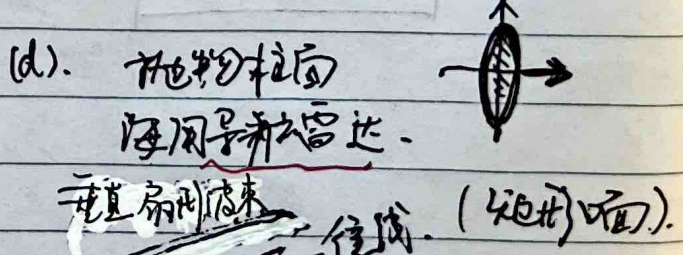 (d). 抛物柱面
海用导航雷达.
垂直扇形波束
(矩形口面).